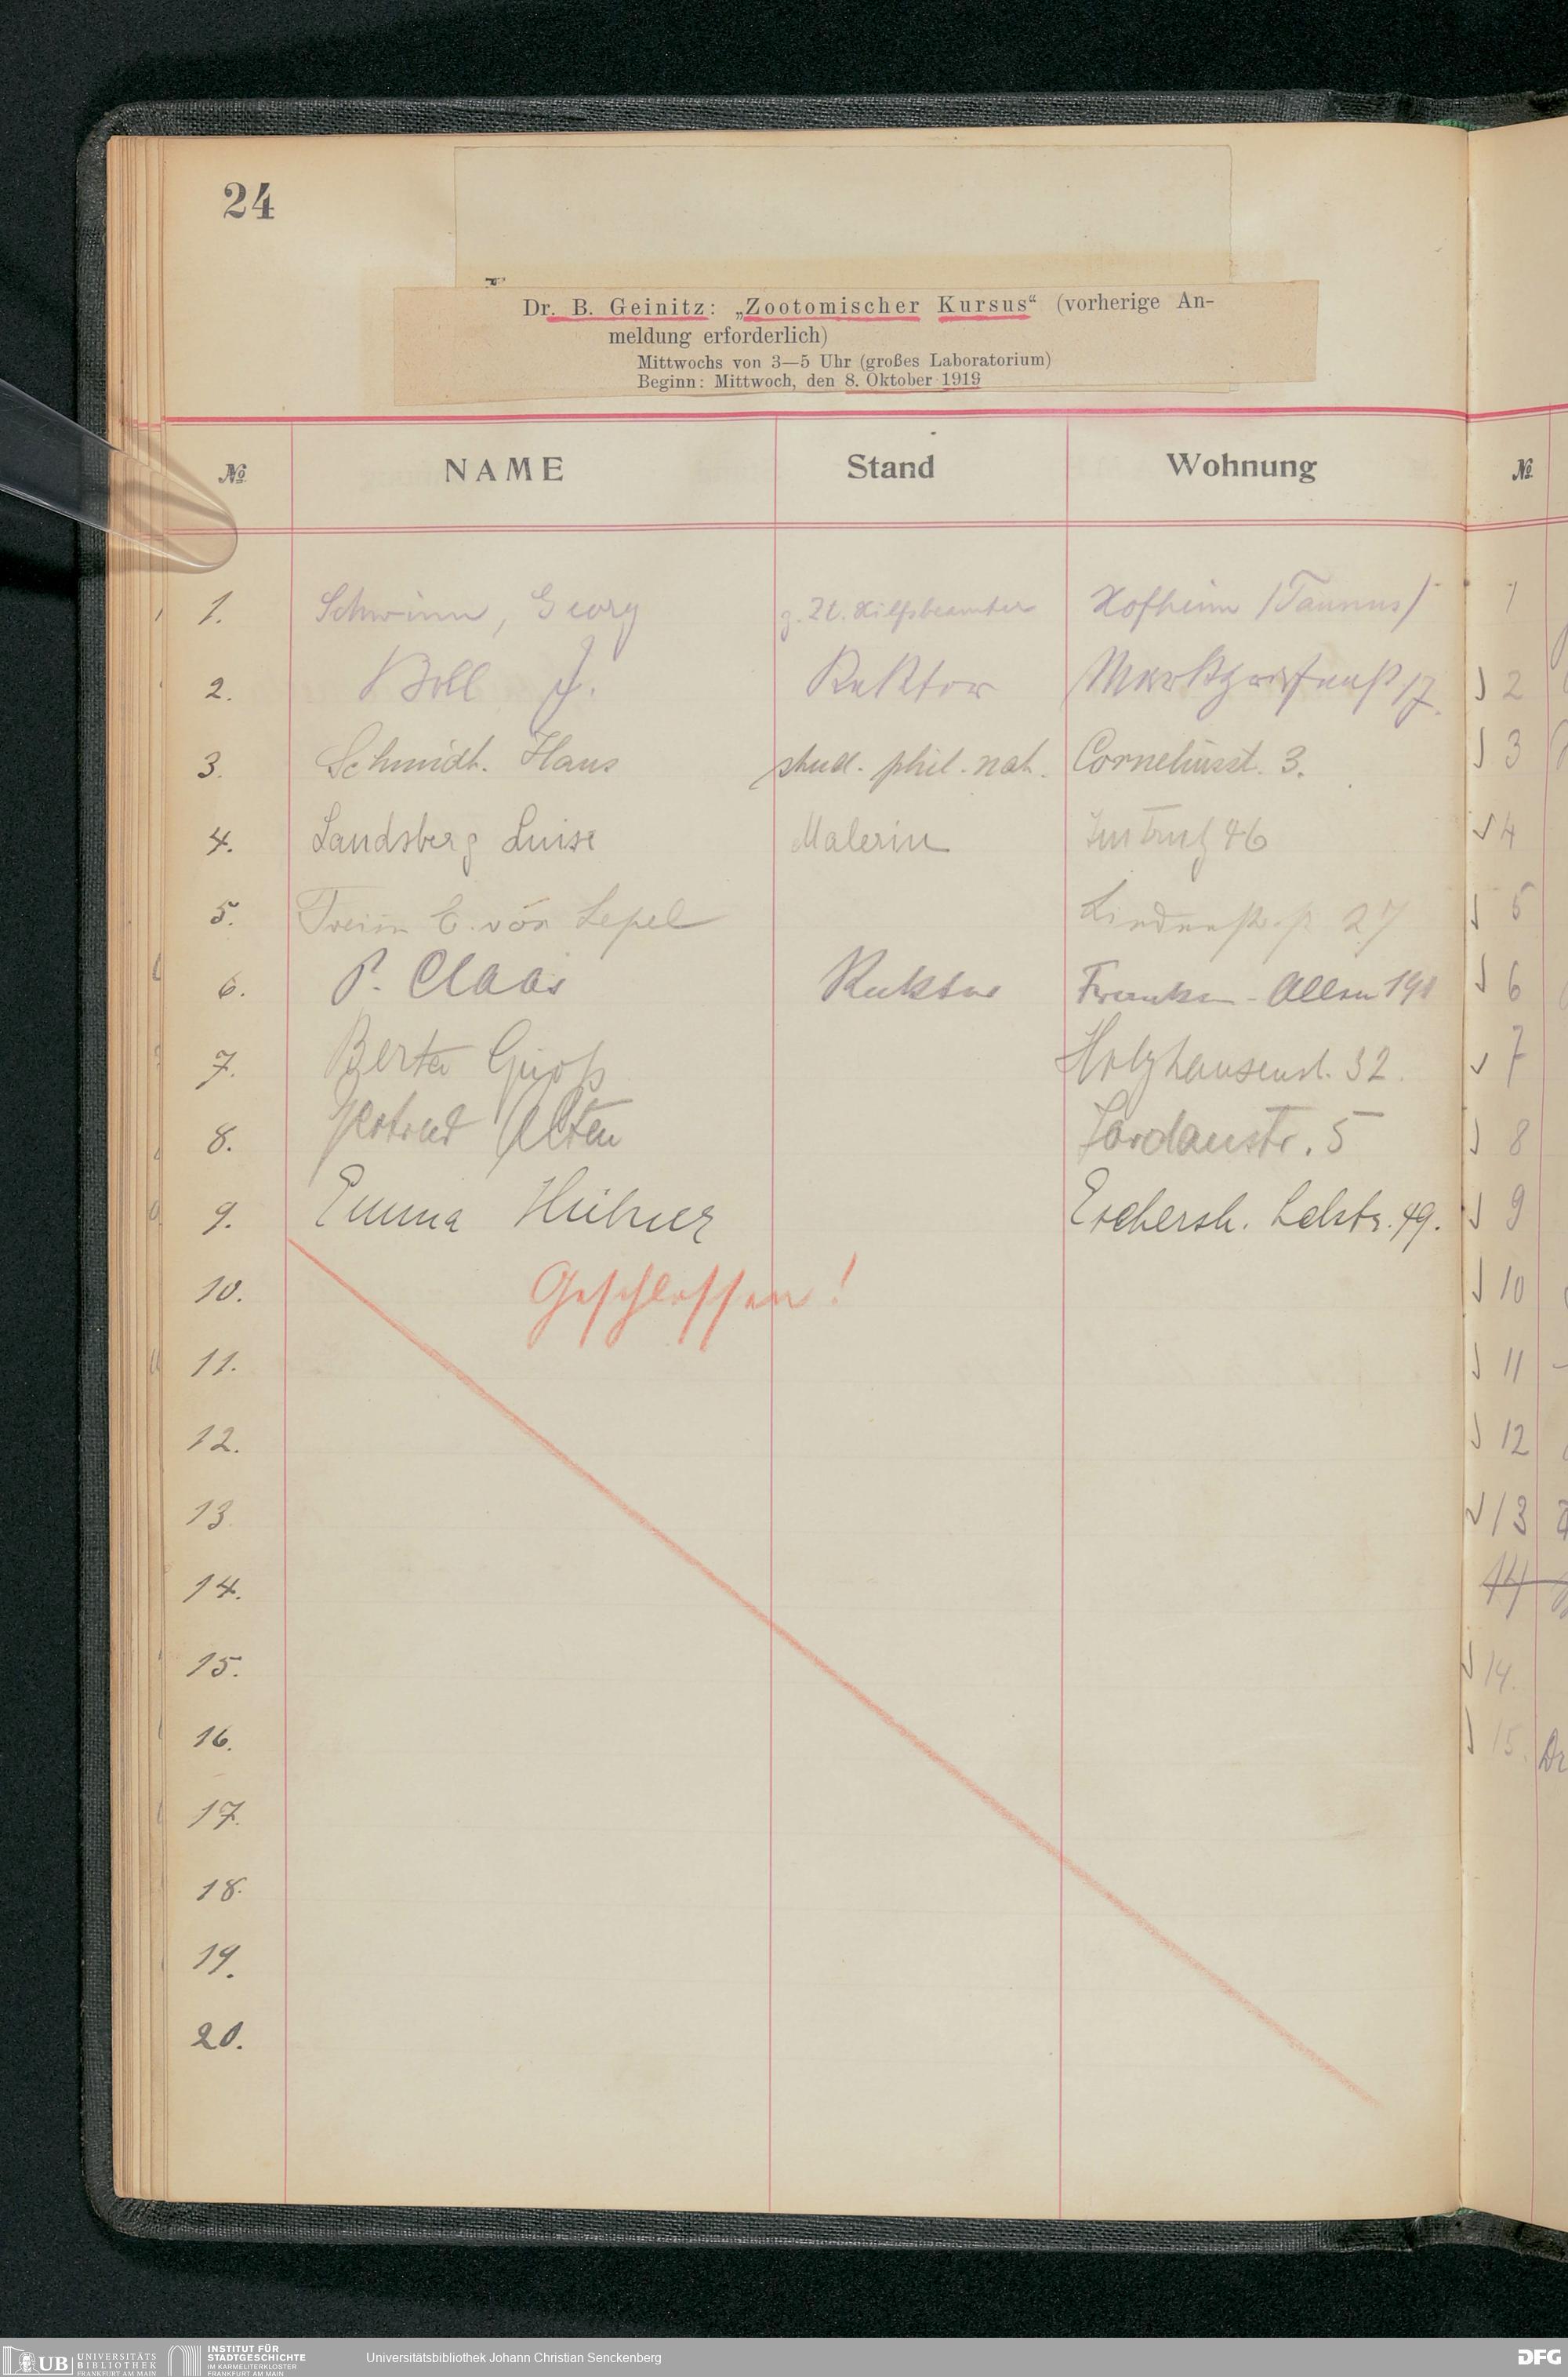 24
Dr. B. Geinitz: „Zootomischer Kursus“ (vorherige An-
meldung erforderlich)
Mittwochs von 3—5 Uhr (großes Laboratorium)
Beginn: Mittwoch, den 8. Oktober 1919
№ NAME Stand Wohnung №
1. Schwinn, Georg z. Zt. Hilfsbeamter Hofheim /Taunus/ 1
2. Boll J. Rektor Markgrafenst 17. 2
3. Schmidt. Hans stud. phil. nat. Corneliusst. 3. 3
4. Landsberg Luise Malerin Im Trutz 46 4
5. Freiin C. von Lepel 27 5
6. P. Claas Rektor Franken-Allee 6
7. Berta Groß Holzhausenst. 32. 7
8. Gertrud Alten Jordanstr. 5 8
9. Emma Hübner Eschersh. Ldstr. 49. 9
10. Geschlossen! 10
11. 11
12. 12
13 13
14. 14
15. 14.
16. 15. Dr
17.
18.
19.
20.
UB UNIVERSITÄTS
BIBLIOTHEK
FRANKFURT AM MAIN
INSTITUT FÜR
STADTGESCHICHTE
IM KARMELITERKLOSTER
FRANKFURT AM MAIN
Universitätsbibliothek Johann Christian Senckenberg
DFG